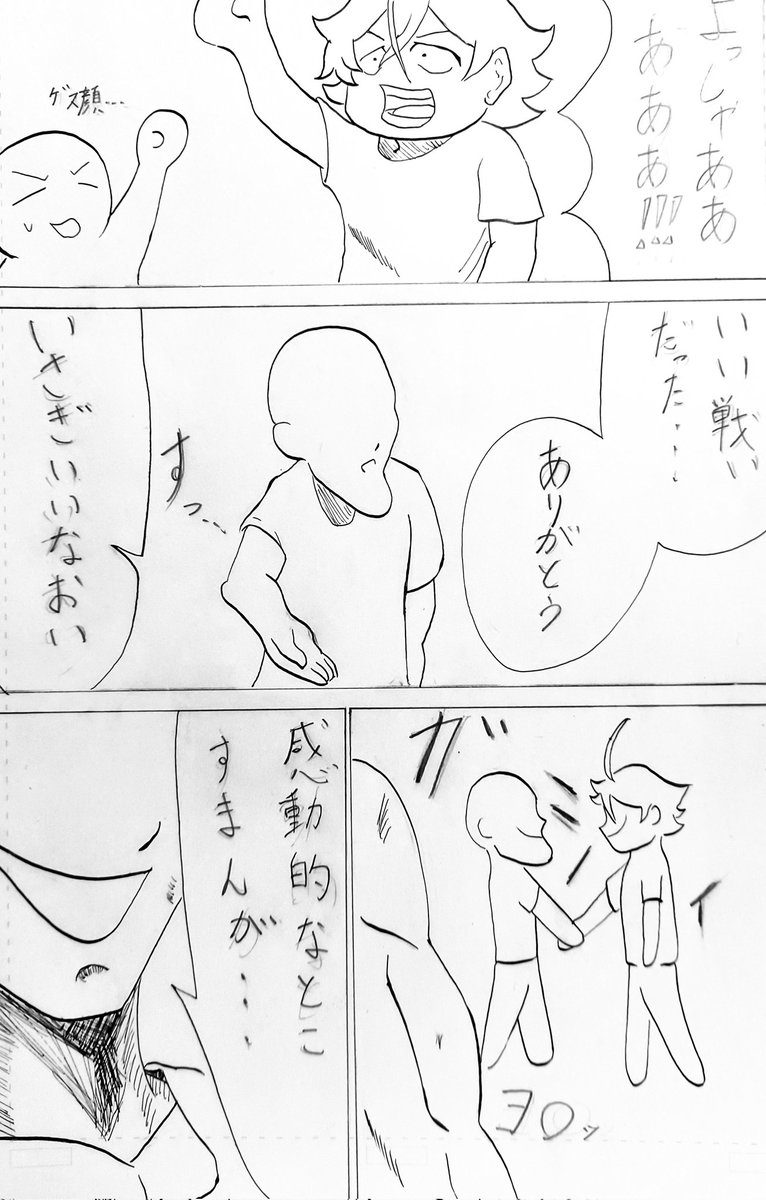 よっしゃああ
あああ!!!
ゲス顔…
いい戦い
だった・・・
ありがとう
すっ…
いさぎいいなおい
ガシ
イ
ヨロッ
感動的なとこ
すまんが・・・